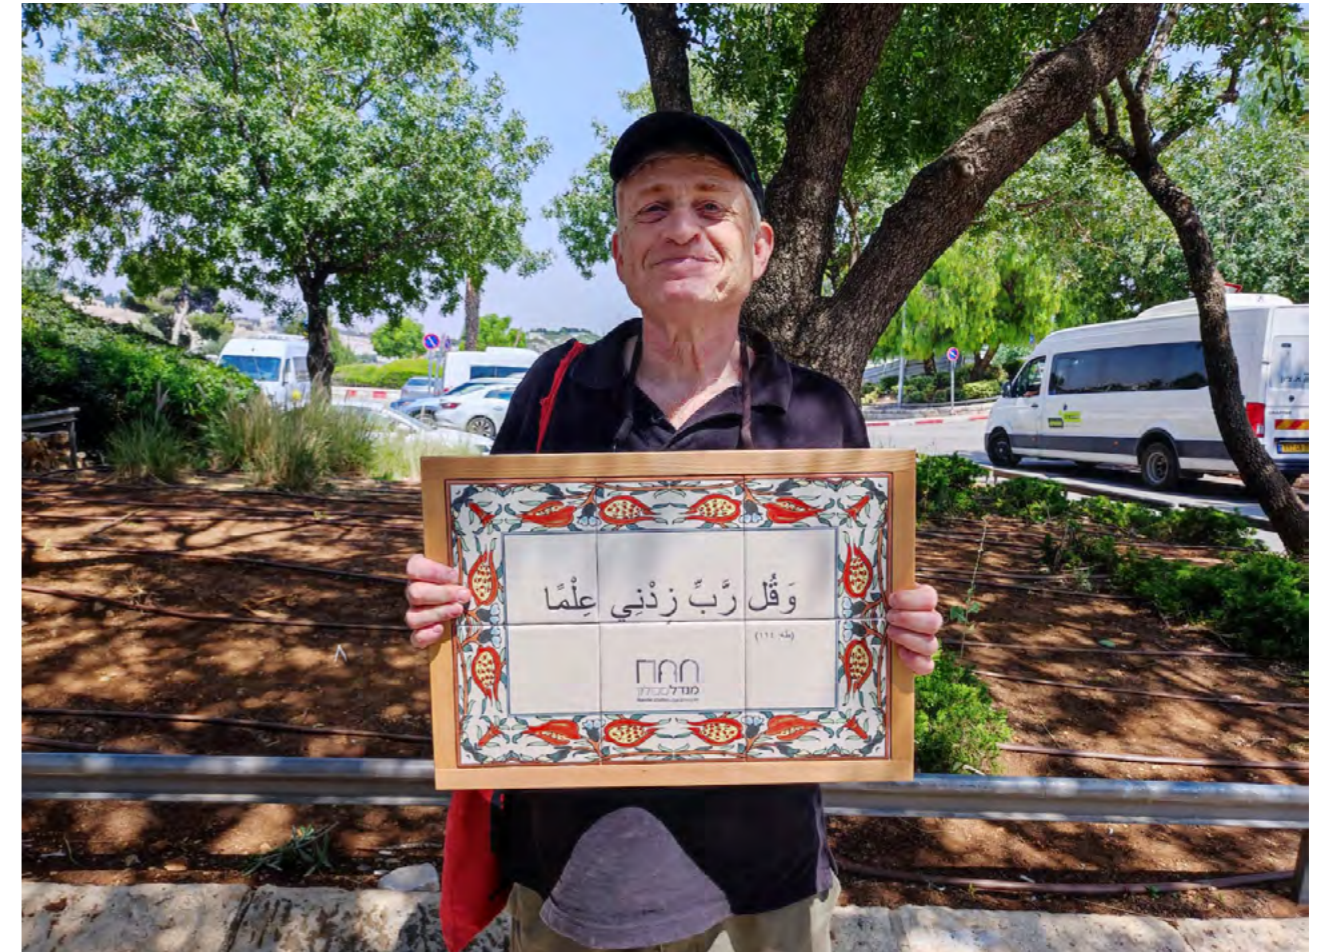 وَقُل رَّبِّ زِدْنِي عِلْمًا
(طه ١١٤)
מנדל